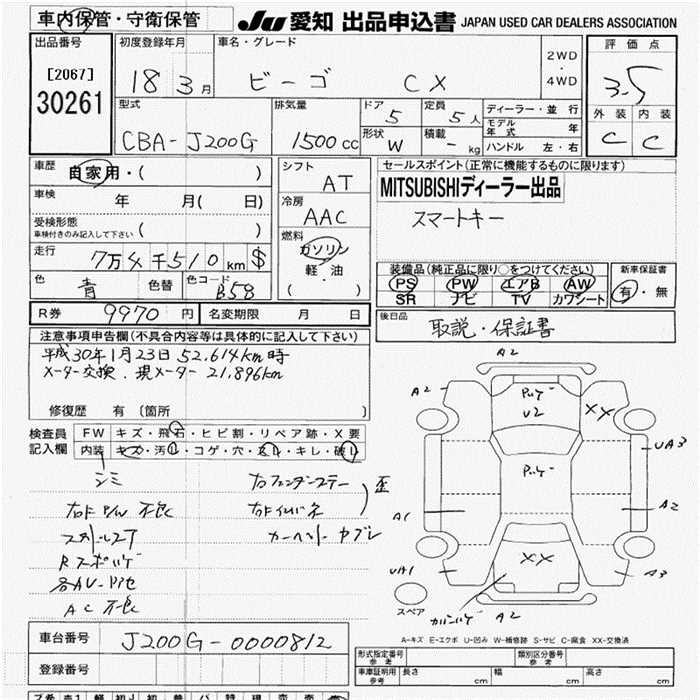 車内保管・守衛保管
JU 愛知 出品申込書 JAPAN USED CAR DEALERS ASSOCIATION
出品番号
[2067]
30261
初度登録年月
18 3月
車名・グレード
ビーゴ CX
2WD
・
4WD
評価点
3.5
外装 内装
C C
型式
CBA-J200G
排気量
1500cc
ドア
5
定員
5人
形状
W
積載
- kg
ディーラー・並行
モデル年式 年
ハンドル 左・右
車歴
自家用・( )
車検
年 月( 日)
受検形態
車検付きのみ記入して下さい ( )
走行
7万4千510km $
色
青
色替
色コード
B58
シフト
AT
冷房
AAC
燃料
ガソリン
軽・油
・
( )
セールスポイント(正常に機能するものに限ります)
MITSUBISHIディーラー出品
スマートキー
装備品(純正品に限り○をつけてください)
PS PW エアB AW
SR ナビ TV カワシート
新車保証書
有・無
R券 9970円
名変期限 月 日
後日品
取説・保証書
注意事項申告欄(不具合内容等は具体的に記入して下さい)
平成30年1月23日 52,614km時
メーター交換.現メーター21,896km
修復歴 有 〔箇所 〕
検査員
記入欄
FW キズ・飛石・ヒビ割・リペア跡・X要
内装 キズ・汚レ・コゲ・穴・スレ・キレ・破レ
シミ
各AU-
AC
歪
A2
A2
U2
XX
UA3
A1
A2
UA1
XX
A3
A2
スペア
A-キズ E-エクボ U-凹み W-補修跡 S-サビ C-腐食 XX-交換済
車台番号
J200G-0000812
登録番号
形式指定番号
参考
類別区分番号
参考
車庫証明用
参考
長さ cm
幅 cm
高さ cm